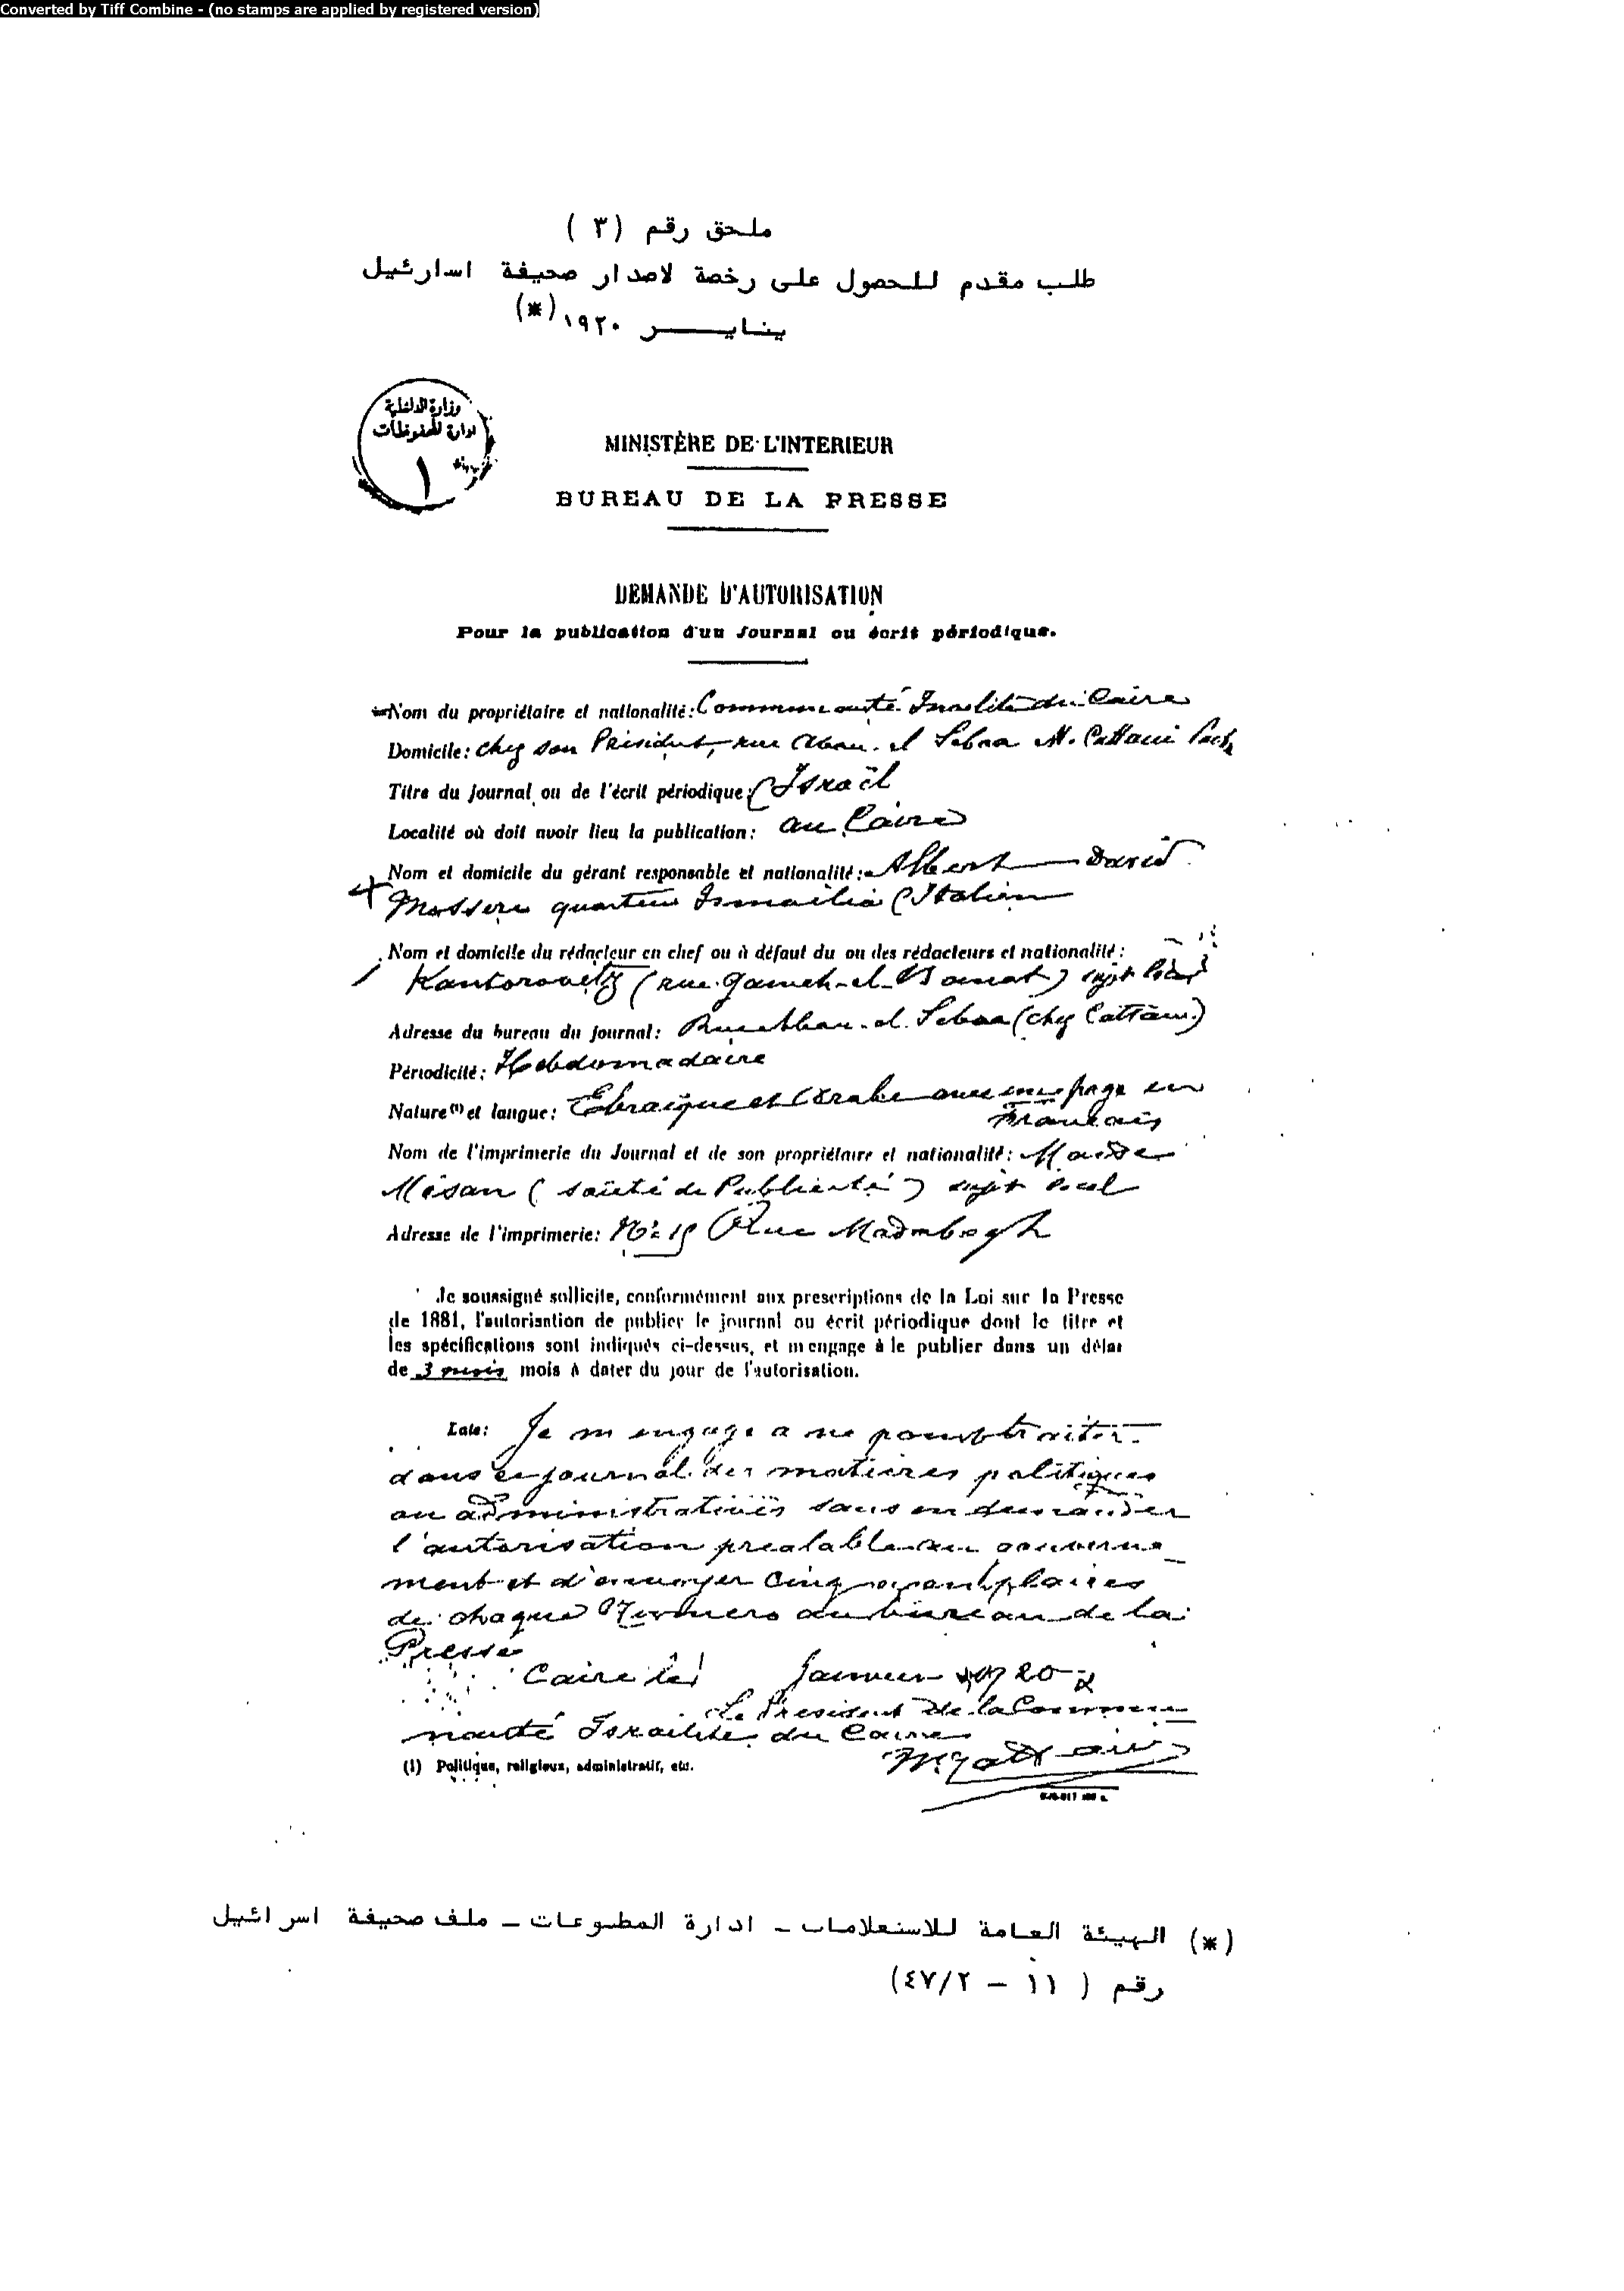 Converted by Tiff Combine - (no stamps are applied by registered version)
ملحق رقم (٣)
طلب مقدم للحصول على رخصة لاصدار صحيفة اسارئيل
ينايـــر ١٩٢٠(*)
وزارة الداخلية
ادارة المحفوظات
١
MINISTÈRE DE L'INTERIEUR
BUREAU DE LA PRESSE
DEMANDE D'AUTORISATION
Pour la publication d'un Journal ou écrit périodique.
Nom du propriétaire et nationalité: Communauté Israélite du Caire
Domicile: chez son Président, rue Abou-el Sebaa M. Cattaui Pacha
Titre du Journal ou de l'écrit périodique: Israël
Localité où doit avoir lieu la publication: au Caire
Nom et domicile du gérant responsable et nationalité: Albert David
Mosseri quartier Ismailia (Italien
Nom et domicile du rédacteur en chef ou à défaut du ou des rédacteurs et nationalité:
Kantorovitz (rue Gameh-el-) sujet local
Adresse du bureau du Journal: Rue Abou-el-Sebaa (chez Cattaui)
Périodicité: Hebdomadaire
Nature(1) et langue: Ebraïque et Arabe avec une page en
Francais
Nom de l'imprimerie du Journal et de son propriétaire et nationalité:
(Société de Publicité) sujet local
Adresse de l'imprimerie: No 19 Rue Madabegh
Je soussigné sollicite, conformément aux prescriptions de la Loi sur la Presse
de 1881, l'autorisation de publier le journal ou écrit périodique dont le titre et
les spécifications sont indiqués ci-dessus, et m'engage à le publier dans un délai
de 3 mois mois à dater du jour de l'autorisation.
Date: Je m'engage a ne pas traiter
dans ce journal des matières politiques
ou administratives sans en demander
l'autorisation prealable au gouverne-
ment et d'envoyer cinq exemplaires
de chaque Numero au bureau de la
Presse
Caire le Janvier 1920
Le President de la Commu
nauté Israelite du Caire
(1) Politique, religieux, administratif, etc.
(*) الهيئة العامة للاستعلامات - ادارة المطبوعات - ملف صحيفة اسرائيل
رقم (١١ - ٤٧/٢)